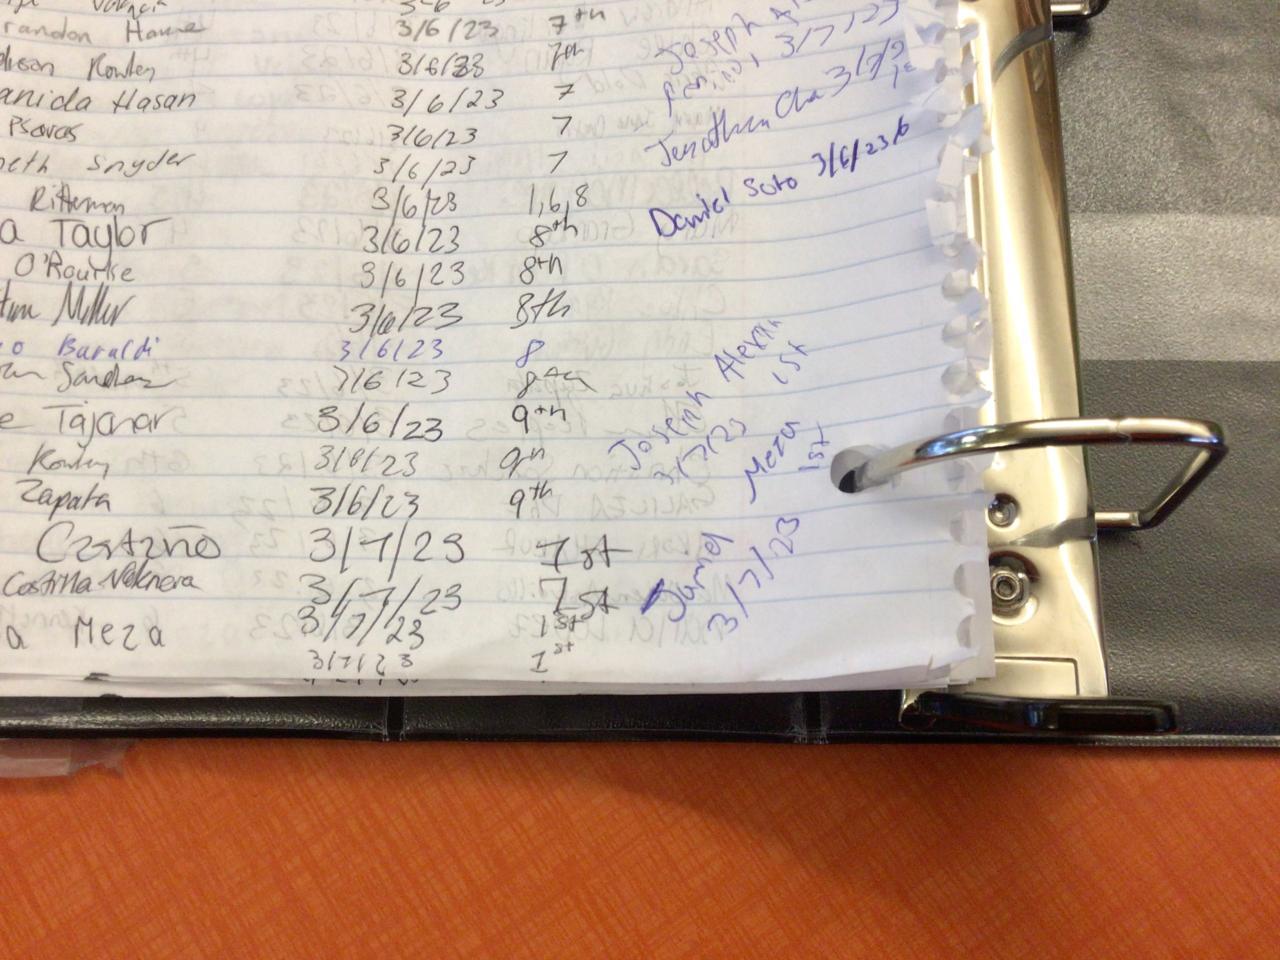 3/6/23 7th
randon Hawe 3/6/23 7th
Rowley 3/6/23 7th
anida Hasan 3/6/23 7
Psaras 3/6/23 7
neth Snyder 3/6/23 7
Ritterman 3/6/23 1,6,8
a Taylor 3/6/23 8th
O'Rourke 3/6/23 8th
Miller 3/6/23 8th
o Baraldi 3/6/23 8
Sanchez 3/6/23 8th
e Tajonar 3/6/23 9th
Rowley 3/6/23 9th
Zapata 3/6/23 9th
Castaño 3/7/23 1st
Costilla 3/7/23 1st
a Meza 3/7/23 1st
3/7/23 1st
Joseph
3/7/23
Jonathan Cha 3/7/2
Daniel Soto 3/6/23 6
Joseph Alexin
3/7/23 1st
Jamel Meza
3/7/23 1st